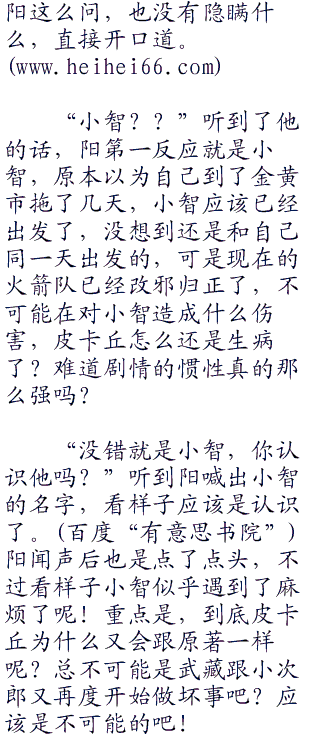 阳这么问，也没有隐瞒什
么，直接开口道。
(www.heihei66.com)
“小智？？”听到了他
的话，阳第一反应就是小
智，原本以为自己到了金黄
市拖了几天，小智应该已经
出发了，没想到还是和自己
同一天出发的，可是现在的
火箭队已经改邪归正了，不
可能在对小智造成什么伤
害，皮卡丘怎么还是生病
了？难道剧情的惯性真的那
么强吗？
“没错就是小智，你认
识他吗？”听到阳喊出小智
的名字，看样子应该是认识
了。(百度“有意思书院”)
阳闻声后也是点了点头，不
过看样子小智似乎遇到了麻
烦了呢！重点是，到底皮卡
丘为什么又会跟原著一样
呢？总不可能是武藏跟小次
郎又再度开始做坏事吧？应
该是不可能的吧！